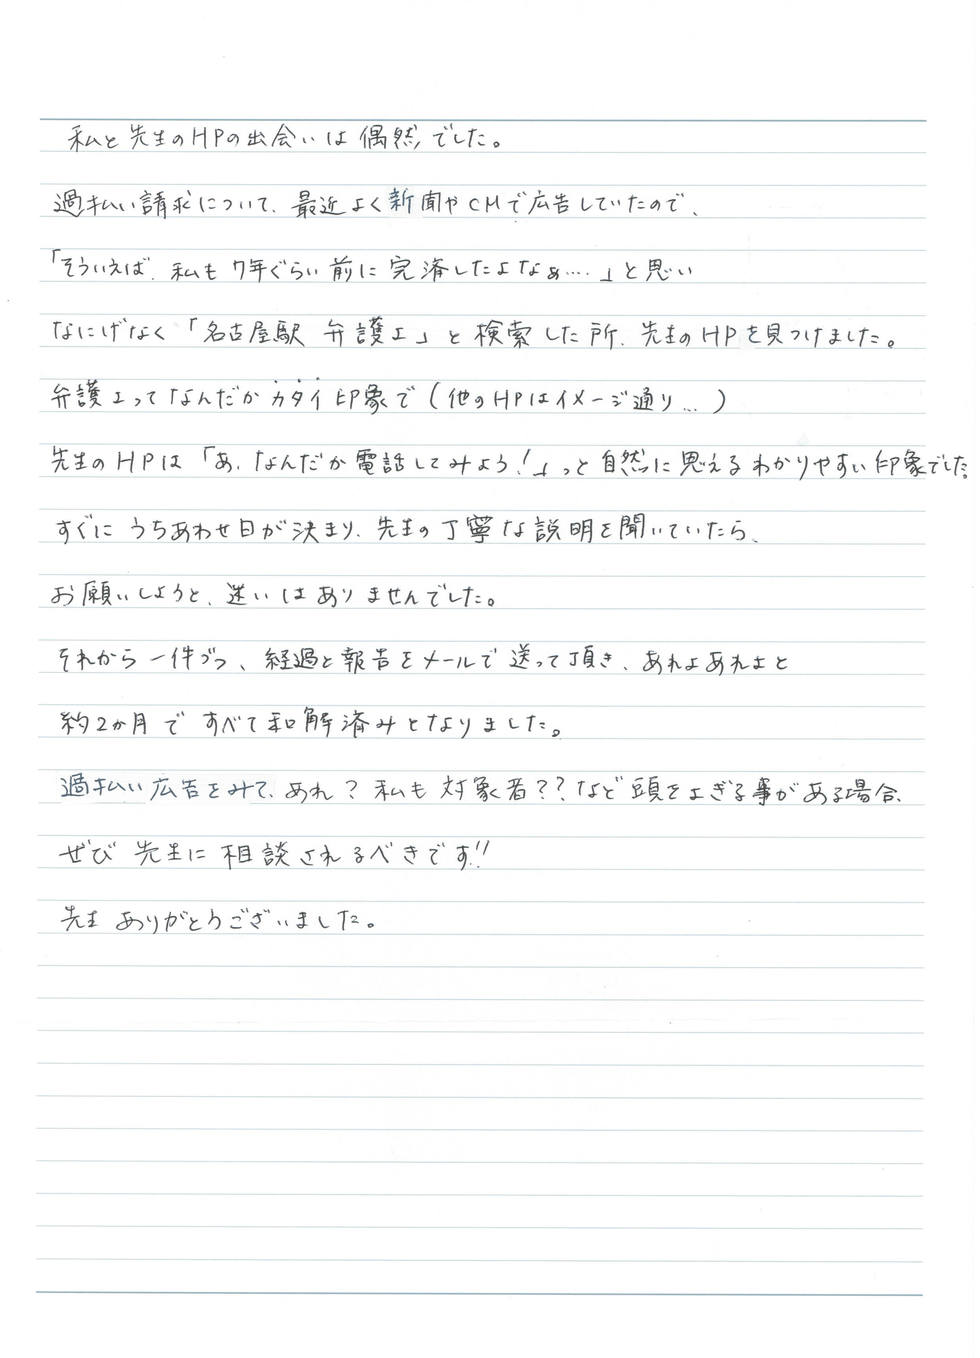 私と先生のHPの出会いは偶然でした。
過払い請求について、最近よく新聞やCMで広告していたので、
「そういえば、私も7年ぐらい前に完済したよなぁ….」と思い
なにげなく「名古屋駅 弁護士」と検索した所、先生のHPを見つけました。
弁護士ってなんだかカタイ印象で(他のHPはイメージ通り…)
先生のHPは「あ、なんだか電話してみよう!」っと自然に思えるわかりやすい印象でした。
すぐにうちあわせ日が決まり、先生の丁寧な説明を聞いていたら、
お願いしようと、迷いはありませんでした。
それから一件づつ、経過と報告をメールで送って頂き、あれよあれよと
約2か月ですべて和解済みとなりました。
過払い広告をみて、あれ?私も対象者??など頭をよぎる事がある場合、
ぜひ先生に相談されるべきです!!
先生ありがとうございました。